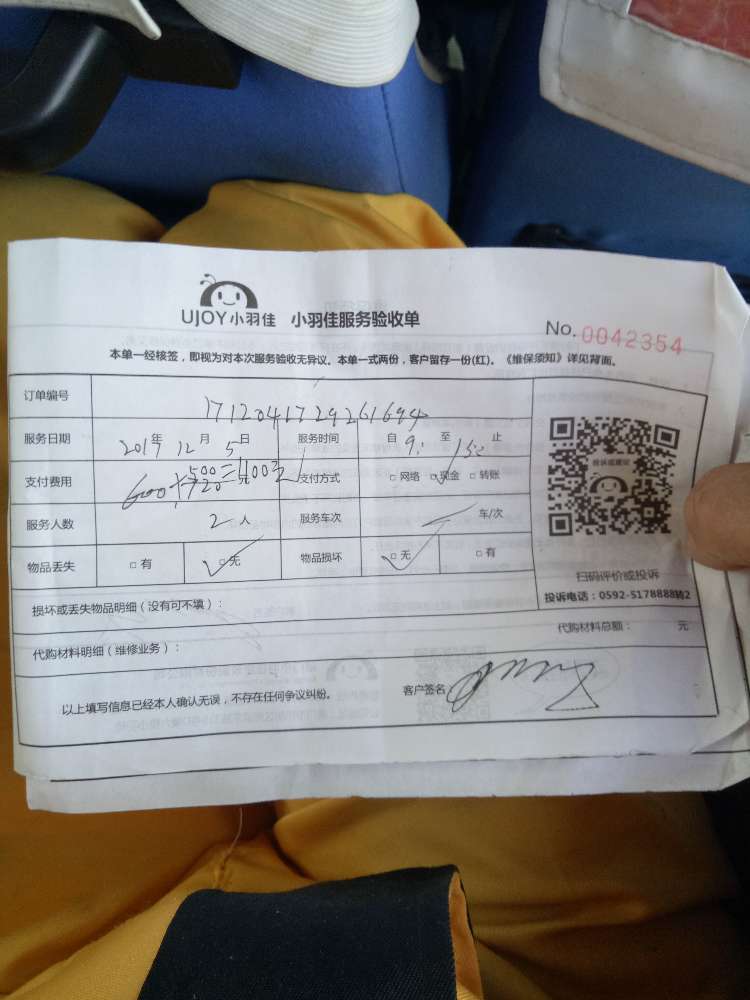 UJOY小羽佳 小羽佳服务验收单
No. 0042354
本单一经核签，即视为对本次服务验收无异议。本单一式两份，客户留存一份(红)。《维保须知》详见背面。
订单编号 1712041729261694
服务日期 2017年 12月 5日 服务时间 自 9: 至 15: 止
支付费用 600+500=1100元 支付方式 □网络 □现金 □转账
服务人数 2人 服务车次 车/次
物品丢失 □有 □无 物品损坏 □无 □有
投诉或建议
扫码评价或投诉
投诉电话：0592-5178888转2
损坏或丢失物品明细（没有可不填）：
代购材料明细（维修业务）： 代购材料总额： 元
以上填写信息已经本人确认无误，不存在任何争议纠纷。 客户签名